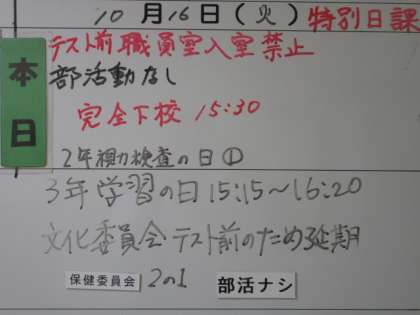 10月16日(火) 特別日課
本日
テスト前職員室入室禁止
部活動なし
完全下校 15:30
2年視力検査の日①
3年学習の日15:15～16:20
文化委員会・テスト前のため延期
保健委員会 2の1 部活ナシ